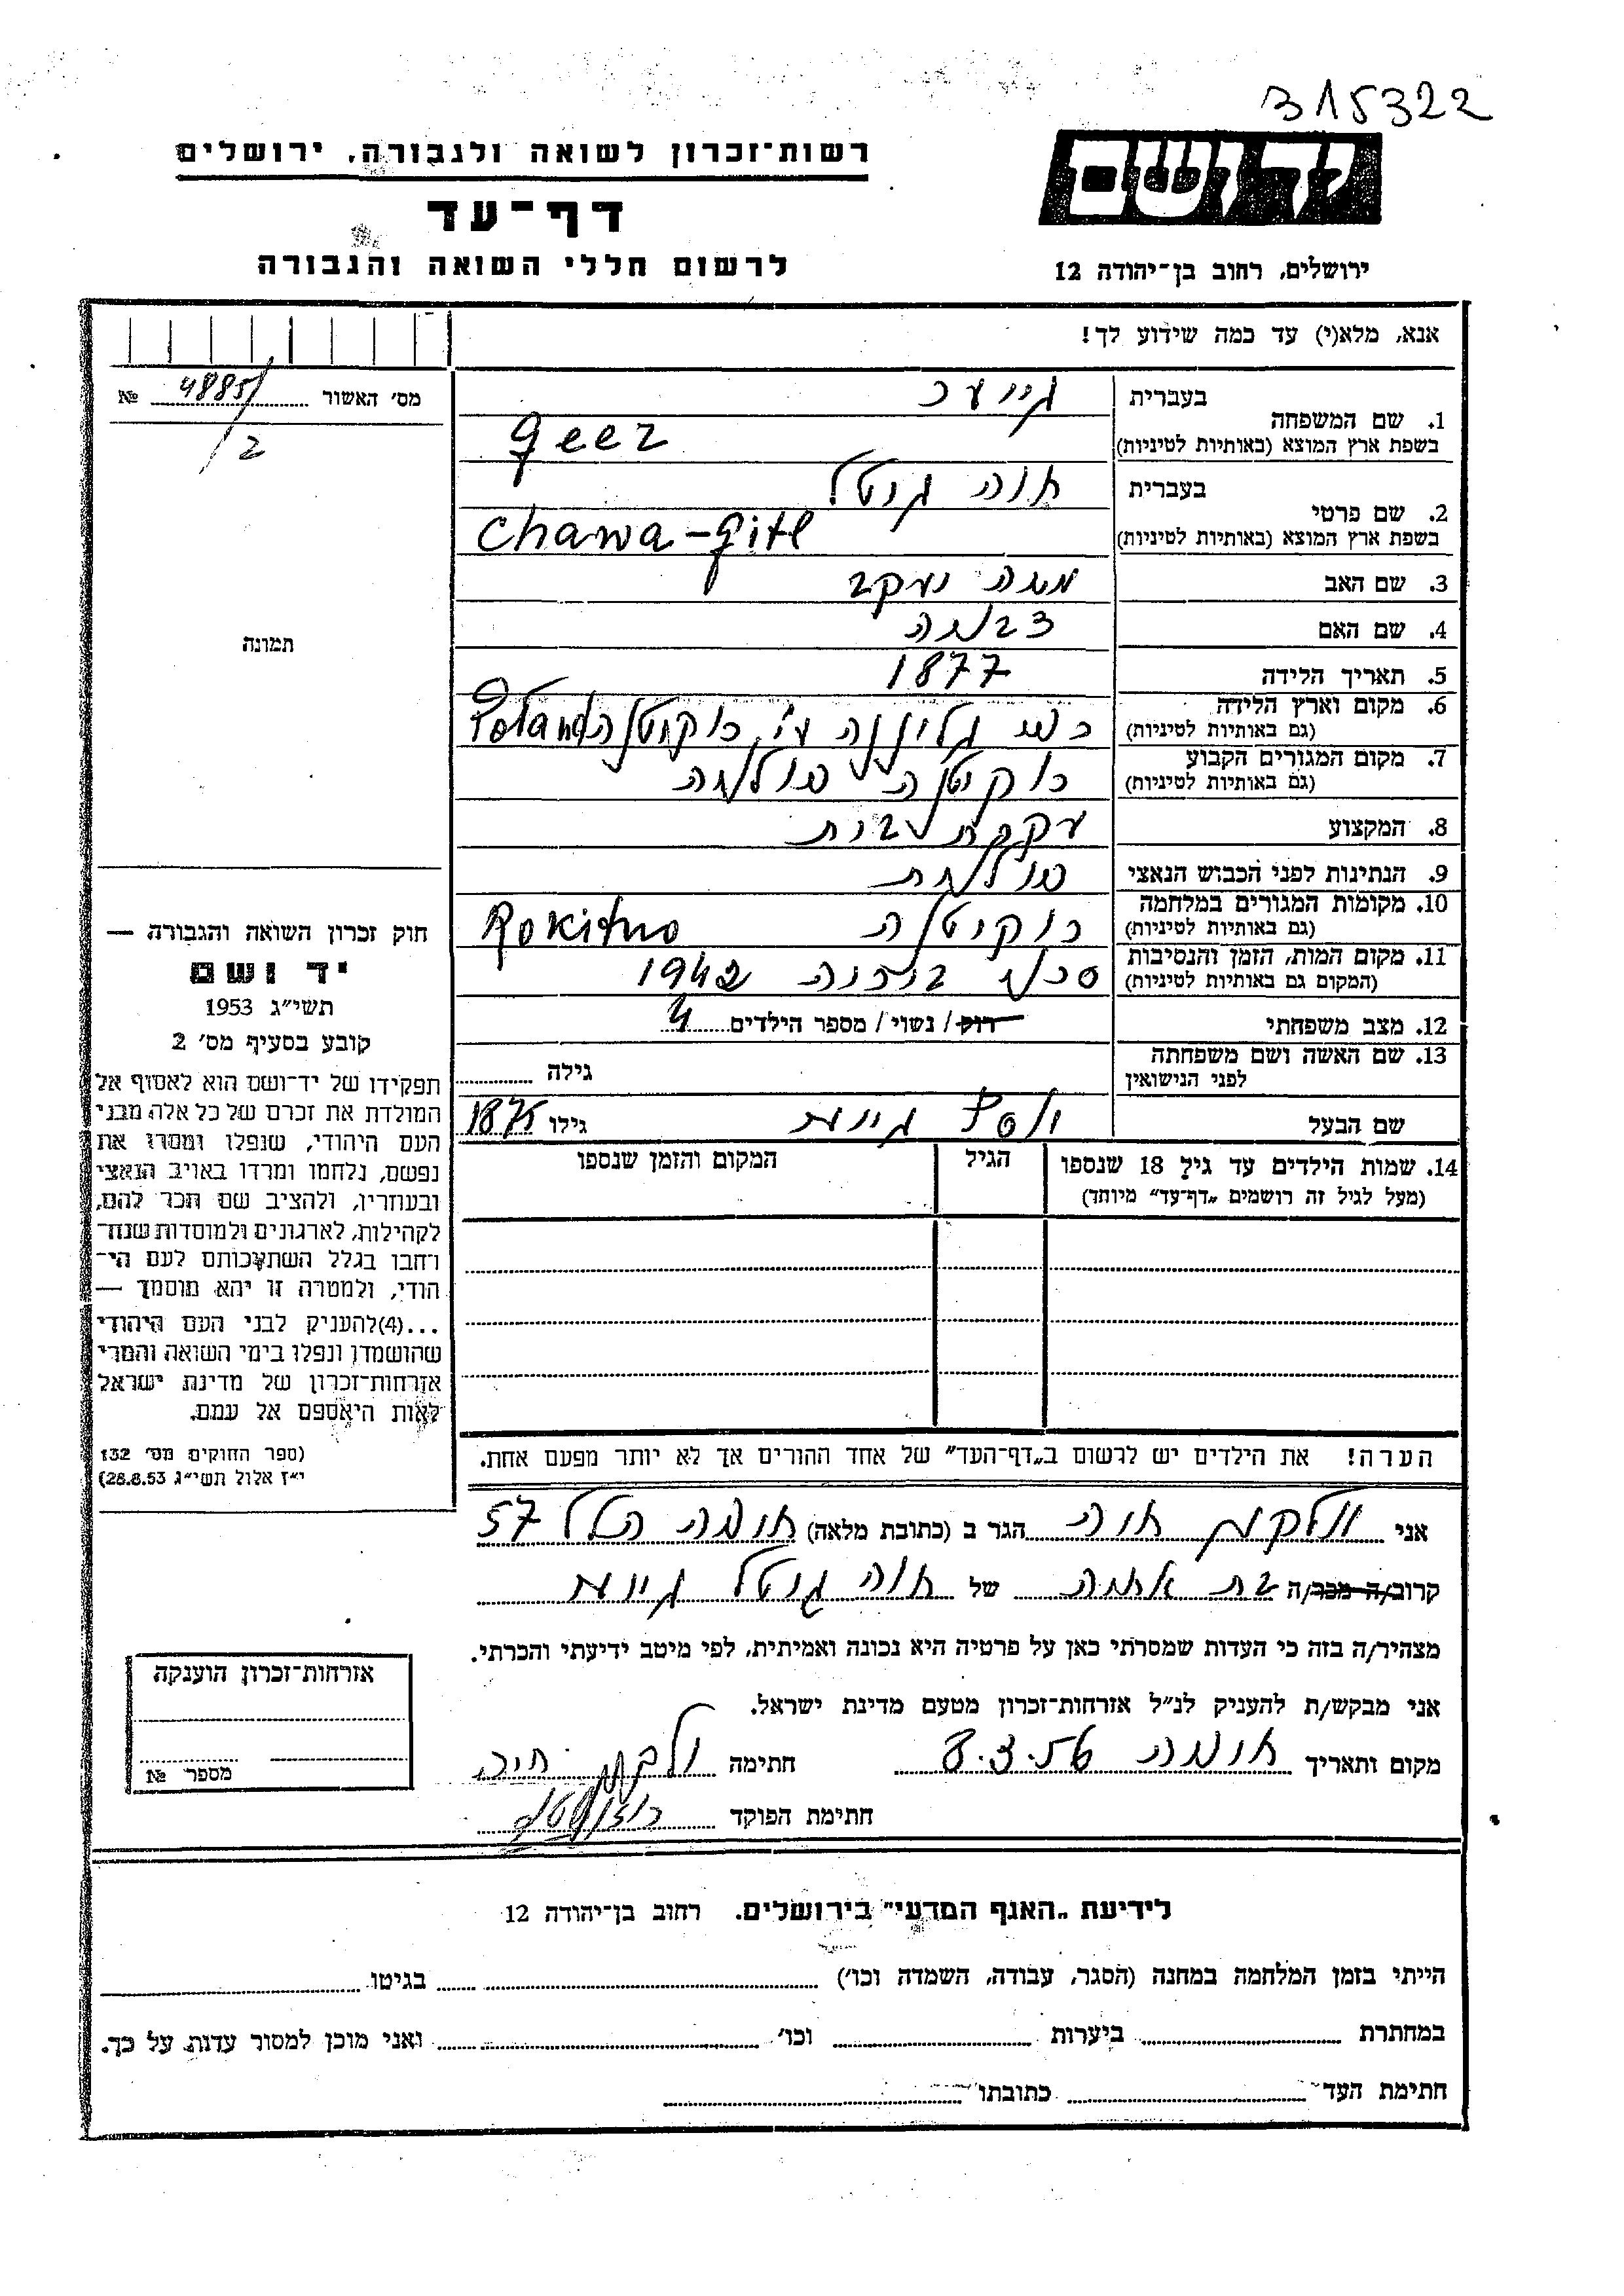 315322
יד ושם
רשות־זכרון לשואה ולגבורה, ירושלים
דף־עד
לרשום חללי השואה והגבורה
ירושלים, רחוב בן־יהודה 12
אנא, מלא(י) עד כמה שידוע לך!
מס׳ האשור 48851 №
/2
תמונה
בעברית
1. שם המשפחה
בשפת ארץ המוצא (באותיות לטיניות) geer
בעברית חוה גיטל
2. שם פרטי
בשפת ארץ המוצא (באותיות לטיניות) Chawa-gitl
3. שם האב משה יעקב
4. שם האם
5. תאריך הלידה 1877
6. מקום וארץ הלידה
(גם באותיות לטיניות) Poland
7. מקום המגורים הקבוע
(גם באותיות לטיניות) רוקיטנה
8. המקצוע עקרת בית
9. הנתינות לפני הכבוש הנאצי פולנית
10. מקומות המגורים במלחמה
(גם באותיות לטיניות) רוקיטנה Rokitno
11. מקום המות, הזמן והנסיבות
(המקום גם באותיות לטיניות) 1942
12. מצב משפחתי רוק / נשוי / מספר הילדים 4
13. שם האשה ושם משפחתה
לפני הנישואין גילה
שם הבעל גילו 1875
14. שמות הילדים עד גיל 18 שנספו
(מעל לגיל זה רושמים „דף־עד״ מיוחד)
הגיל
המקום והזמן שנספו
הערה! את הילדים יש לרשום ב„דף־העד״ של אחד ההורים אך לא יותר מפעם אחת.
חוק זכרון השואה והגבורה —
יד ושם
תשי״ג 1953
קובע בסעיף מס׳ 2
תפקידו של יד־ושם הוא לאסוף אל
המולדת את זכרם של כל אלה מבני
העם היהודי, שנפלו ומסרו את
נפשם, נלחמו ומרדו באויב הנאצי
ובעוזריו, ולהציב שם וזכר להם,
לקהילות, לארגונים ולמוסדות שנח־
רחבו בגלל השתיכותם לעם הי־
הודי, ולמטרה זו יהא מוסמך —
...(4)להעניק לבני העם היהודי
שהושמדו ונפלו בימי השואה והמרי
אזרחות־זכרון של מדינת ישראל
לאות היאספם אל עמם.
(ספר החוקים מס׳ 132
י״ז אלול תשי״ג 28.8.53)
אני חוה הגר ב (כתובת מלאה) חיפה הלל 57
קרוב/ה מכר/ה של חוה גיטל
מצהיר/ה בזה כי העדות שמסרתי כאן על פרטיה היא נכונה ואמיתית, לפי מיטב ידיעתי והכרתי.
אני מבקש/ת להעניק לנ״ל אזרחות־זכרון מטעם מדינת ישראל.
מקום ותאריך חיפה 8.3.56 חתימה
חתימת הפוקד
אזרחות־זכרון הוענקה
מספר №
לידיעת „האגף המדעי״ בירושלים. רחוב בן־יהודה 12
הייתי בזמן המלחמה במחנה (הסגר, עבודה, השמדה וכו׳) בגיטו
במחתרת ביערות וכו׳ ואני מוכן למסור עדות על כך.
חתימת העד כתובתו